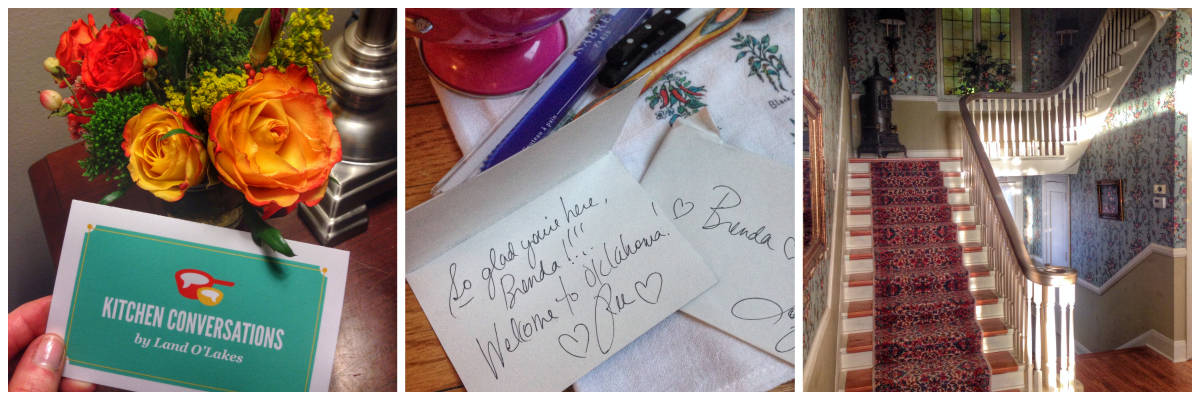 KITCHEN CONVERSATIONS
by Land O'Lakes
SABRE
PARIS
So glad you're here,
Brenda!!!!
Welcome to Oklahoma!
Ree
Brenda